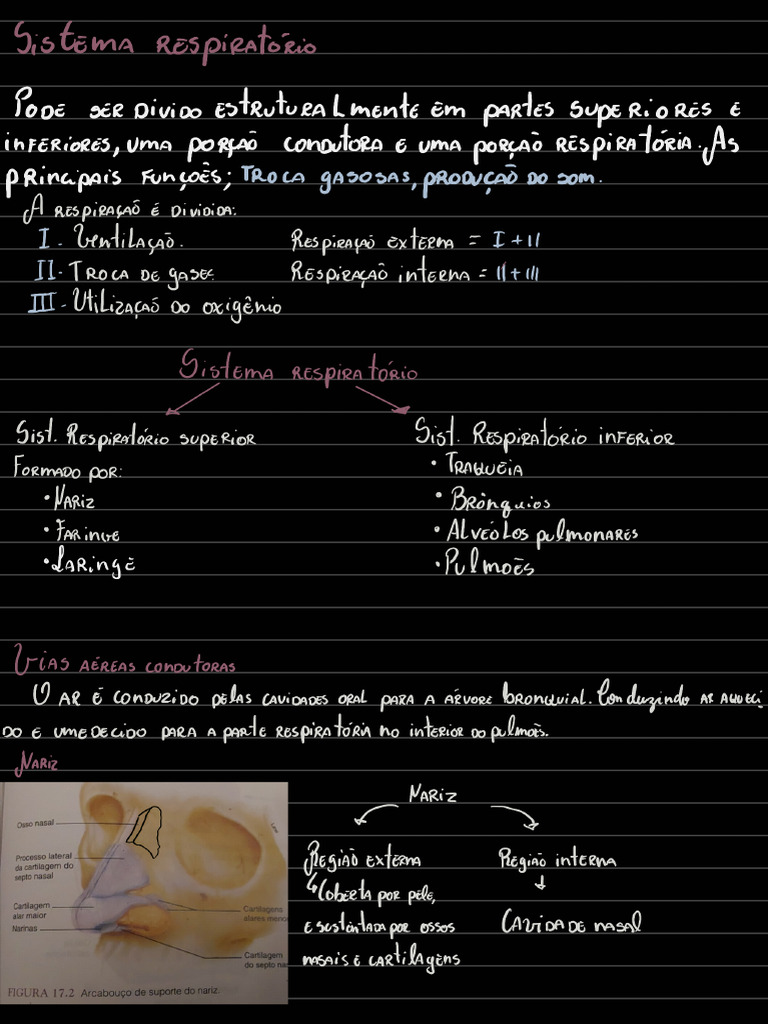 Sistema respiratório
Pode ser divido estruturalmente em partes superiores e
inferiores, uma porção condutora e uma porção respiratória. As
principais funções; troca gasosas, produção do som.
A respiração é dividida:
I - Ventilação.
Respiração externa = I + II
II - Troca de gases.
Respiração interna = II + III
III - Utilização do oxigênio
Sistema respiratório
Sist. Respiratório superior
Formado por:
• Nariz
• Faringe
• Laringe
Sist. Respiratório inferior
• Traqueia
• Brônquios
• Alvéolos pulmonares
• Pulmões
Vias aéreas condutoras
O ar é conduzido pelas cavidades oral para a árvore bronquial. Conduzindo ar aqueci-
do e umedecido para a parte respiratória no interior do pulmões.
Nariz
Osso nasal
Processo lateral
da cartilagem do
septo nasal
Cartilagem
alar maior
Narinas
Cartilagens
alares meno
Cartilagem
do septo na
FIGURA 17.2 Arcabouço de suporte do nariz.
Nariz
Região externa
↳ Coberta por pele,
e sustentada por ossos
nasais e cartilagens
Região interna
Cavidade nasal